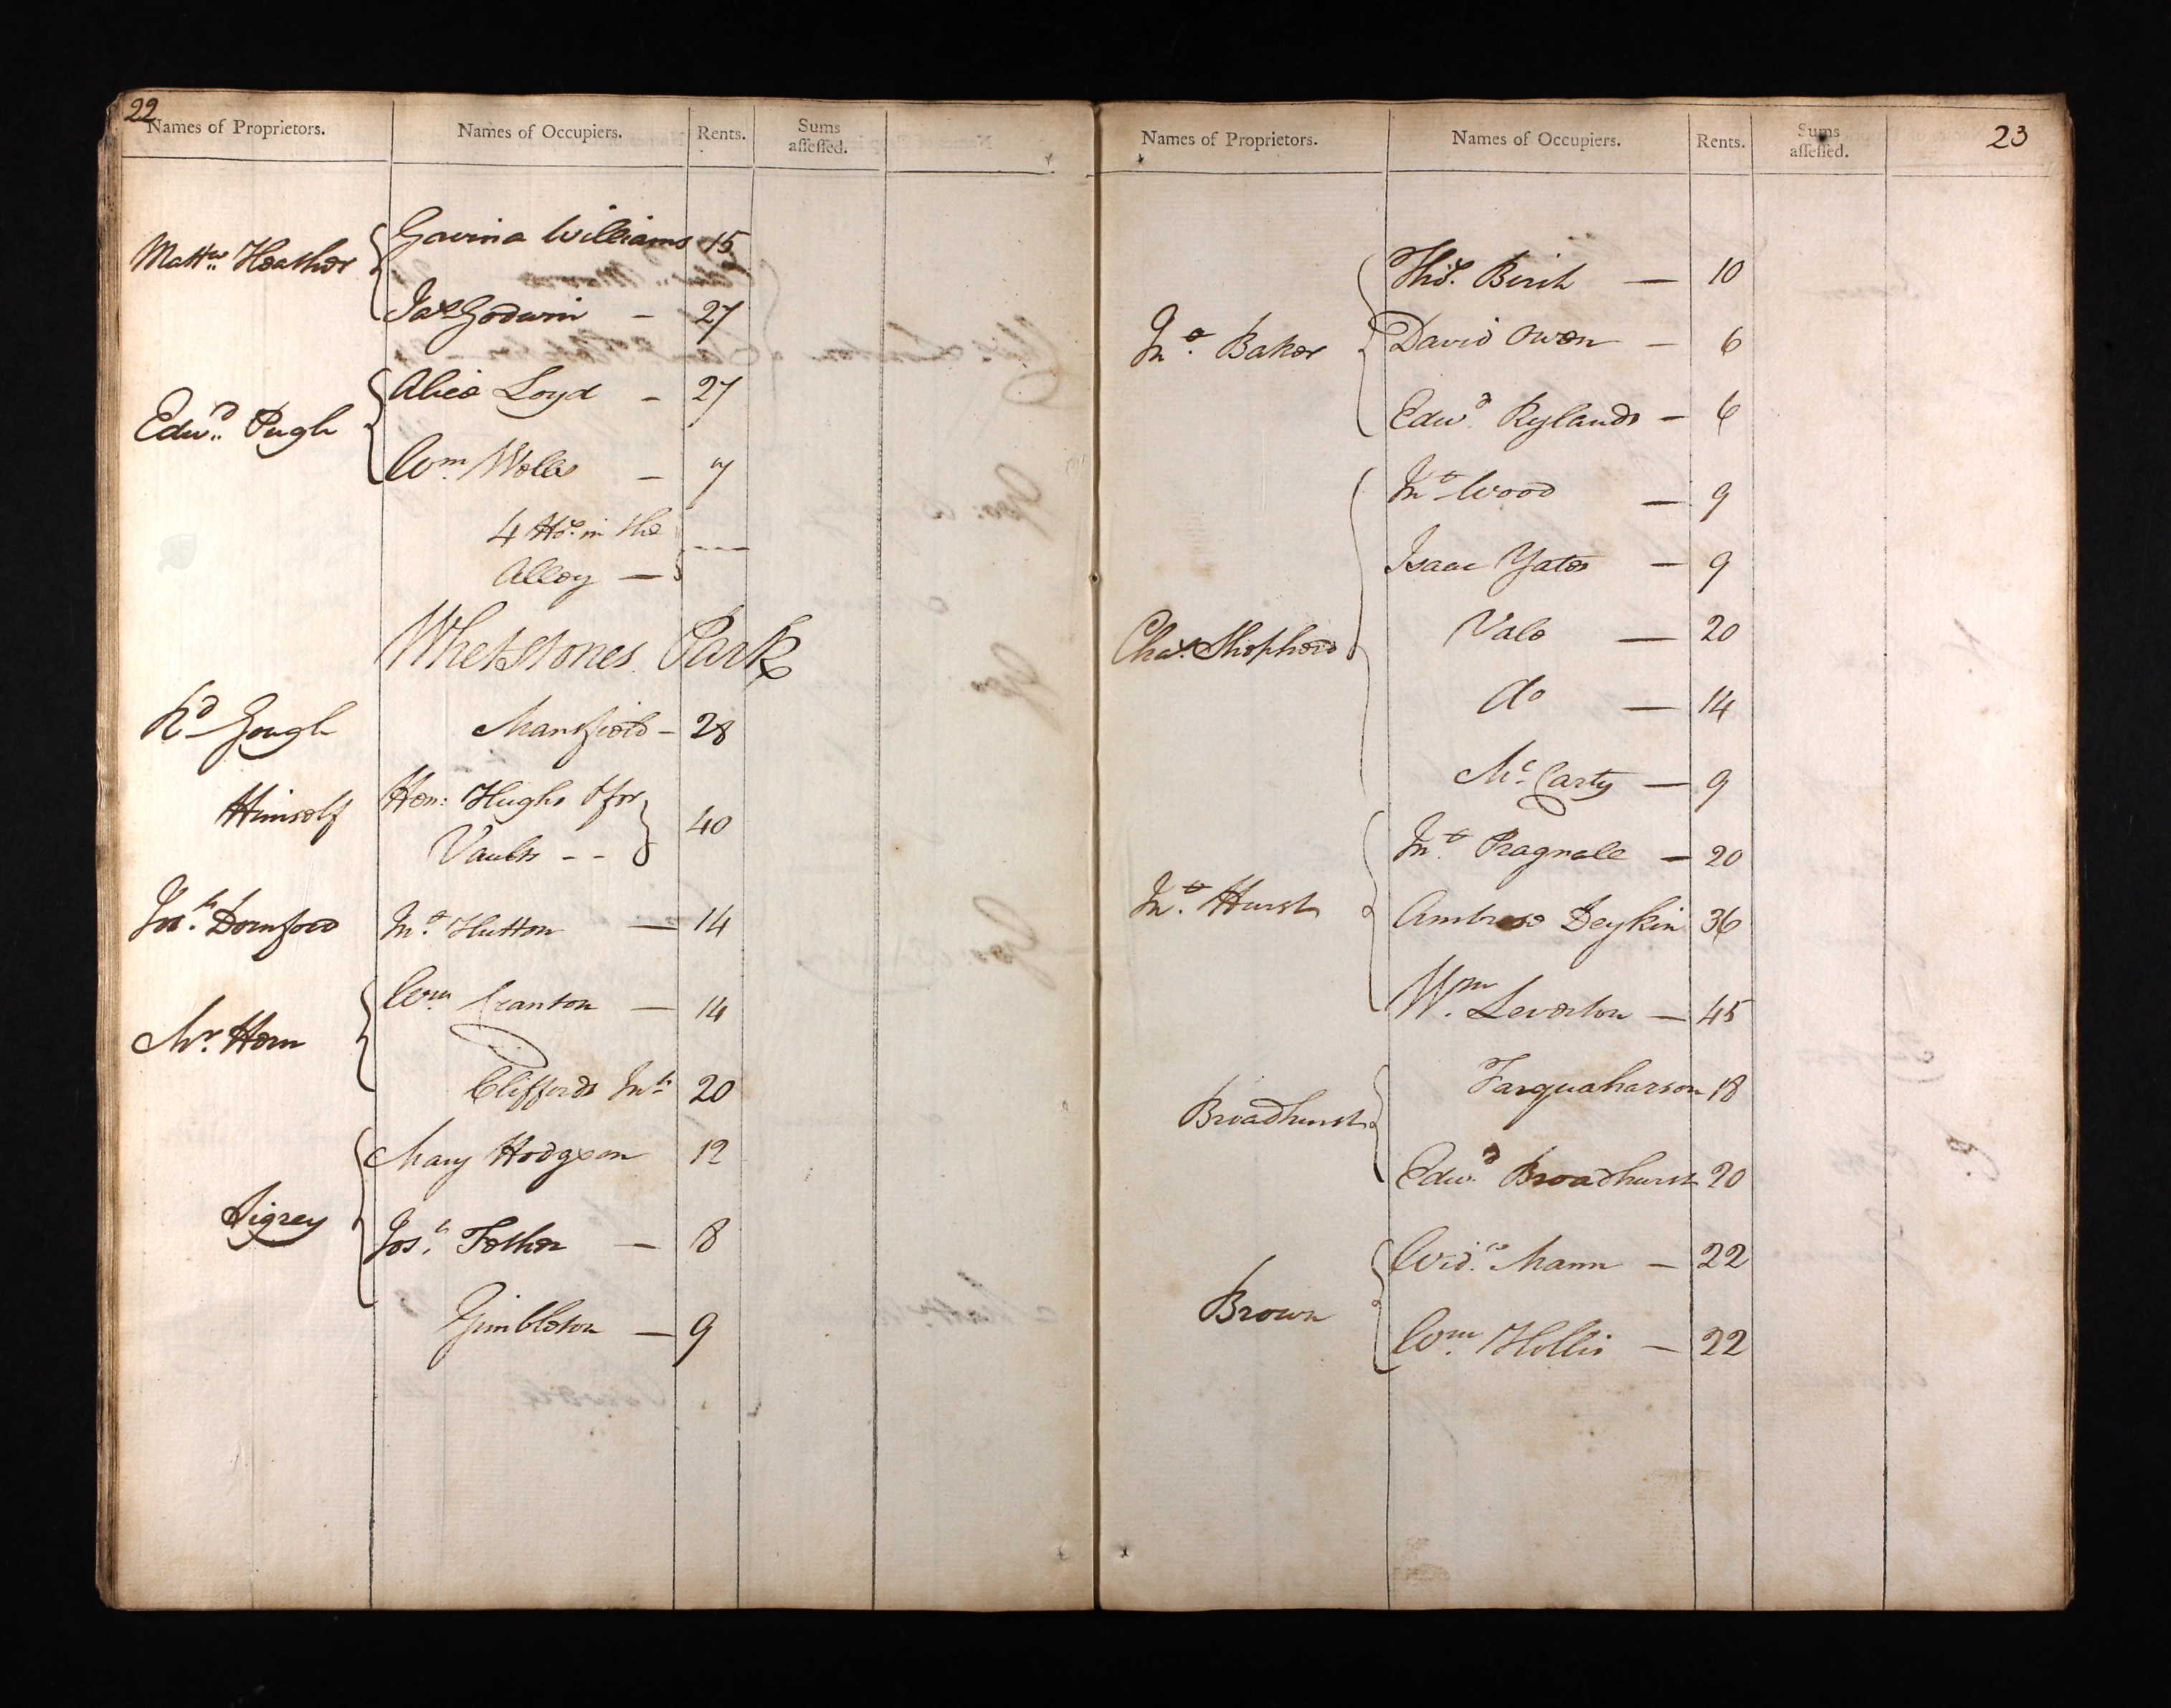 22
Names of Proprietors. Names of Occupiers. Rents. Sums assessed.
Mattw. Heather Gavina Williams 15
Jas Godwin - 27
Edwd. Pugh Alice Loyd - 27
Wm. Wells - 7
4 Hos. in the
Alley - ----
Whetstones Park
Rd Gough Mansfield - 28
Himself Hen: Hughs & for
Vaults - - 40
Josh. Dornford Jno. Hutton - 14
Mr. Horn Wm. Cranton - 14
Cliffords Inn 20
Sigrey Mary Hodgson 12
Josh. Fother - 8
Gimbleton - 9
23
Names of Proprietors. Names of Occupiers. Rents. Sums assessed.
Jno. Baker Thos. Birch - 10
David Owen - 6
Edwd. Rylands - 6
Chas. Shepherd Jno Wood - 9
Isaac Yates - 9
Vale - 20
do - 14
McCarty - 9
Jno. Hurst Jno. Pragnall - 20
Ambrose Deykin 36
Wm. Leverton - 45
Broadhurst Farquaharson 18
Edwd. Broadhurst 20
Brown Widw. Mann - 22
Wm. Hollis - 22